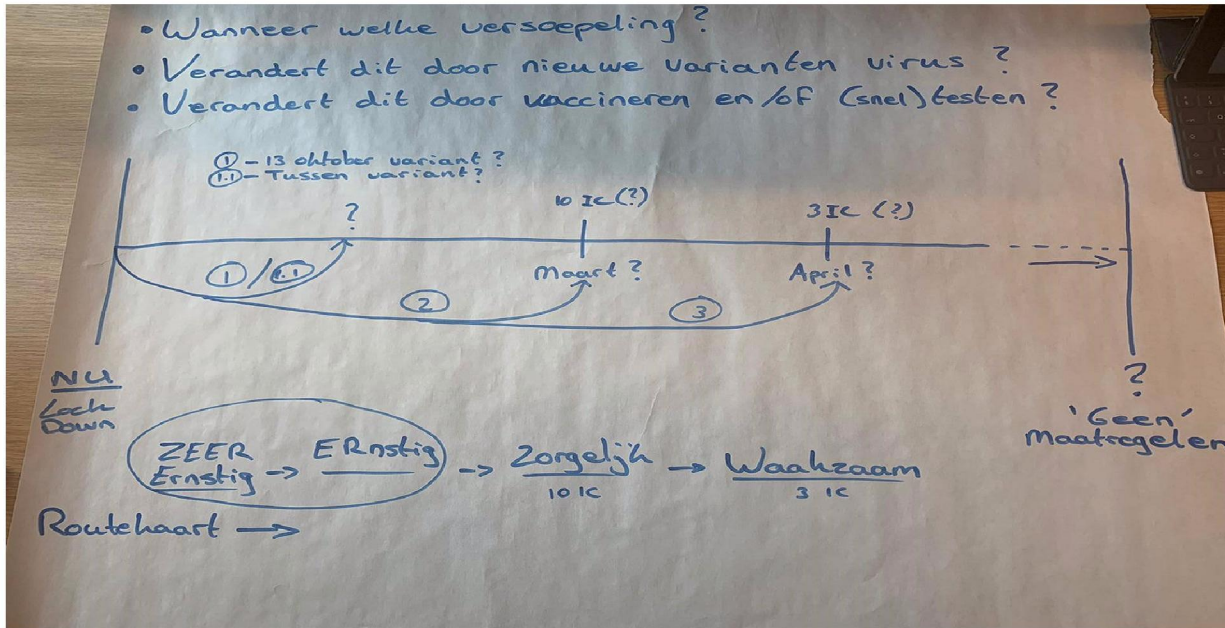 • Wanneer welke versoepeling ?
• Verandert dit door nieuwe varianten virus ?
• Verandert dit door vaccineren en/of (snel)testen ?
① - 13 oktober variant ?
1.1 - Tussen variant ?
?
10 IC (?)
3 IC (?)
Maart ?
April ?
①/1.1
②
③
NU
Lock
Down
?
'Geen'
Maatregelen
ZEER
Ernstig -> ERnstig -> Zorgelijk -> Waakzaam
10 IC
3 IC
Routekaart ->